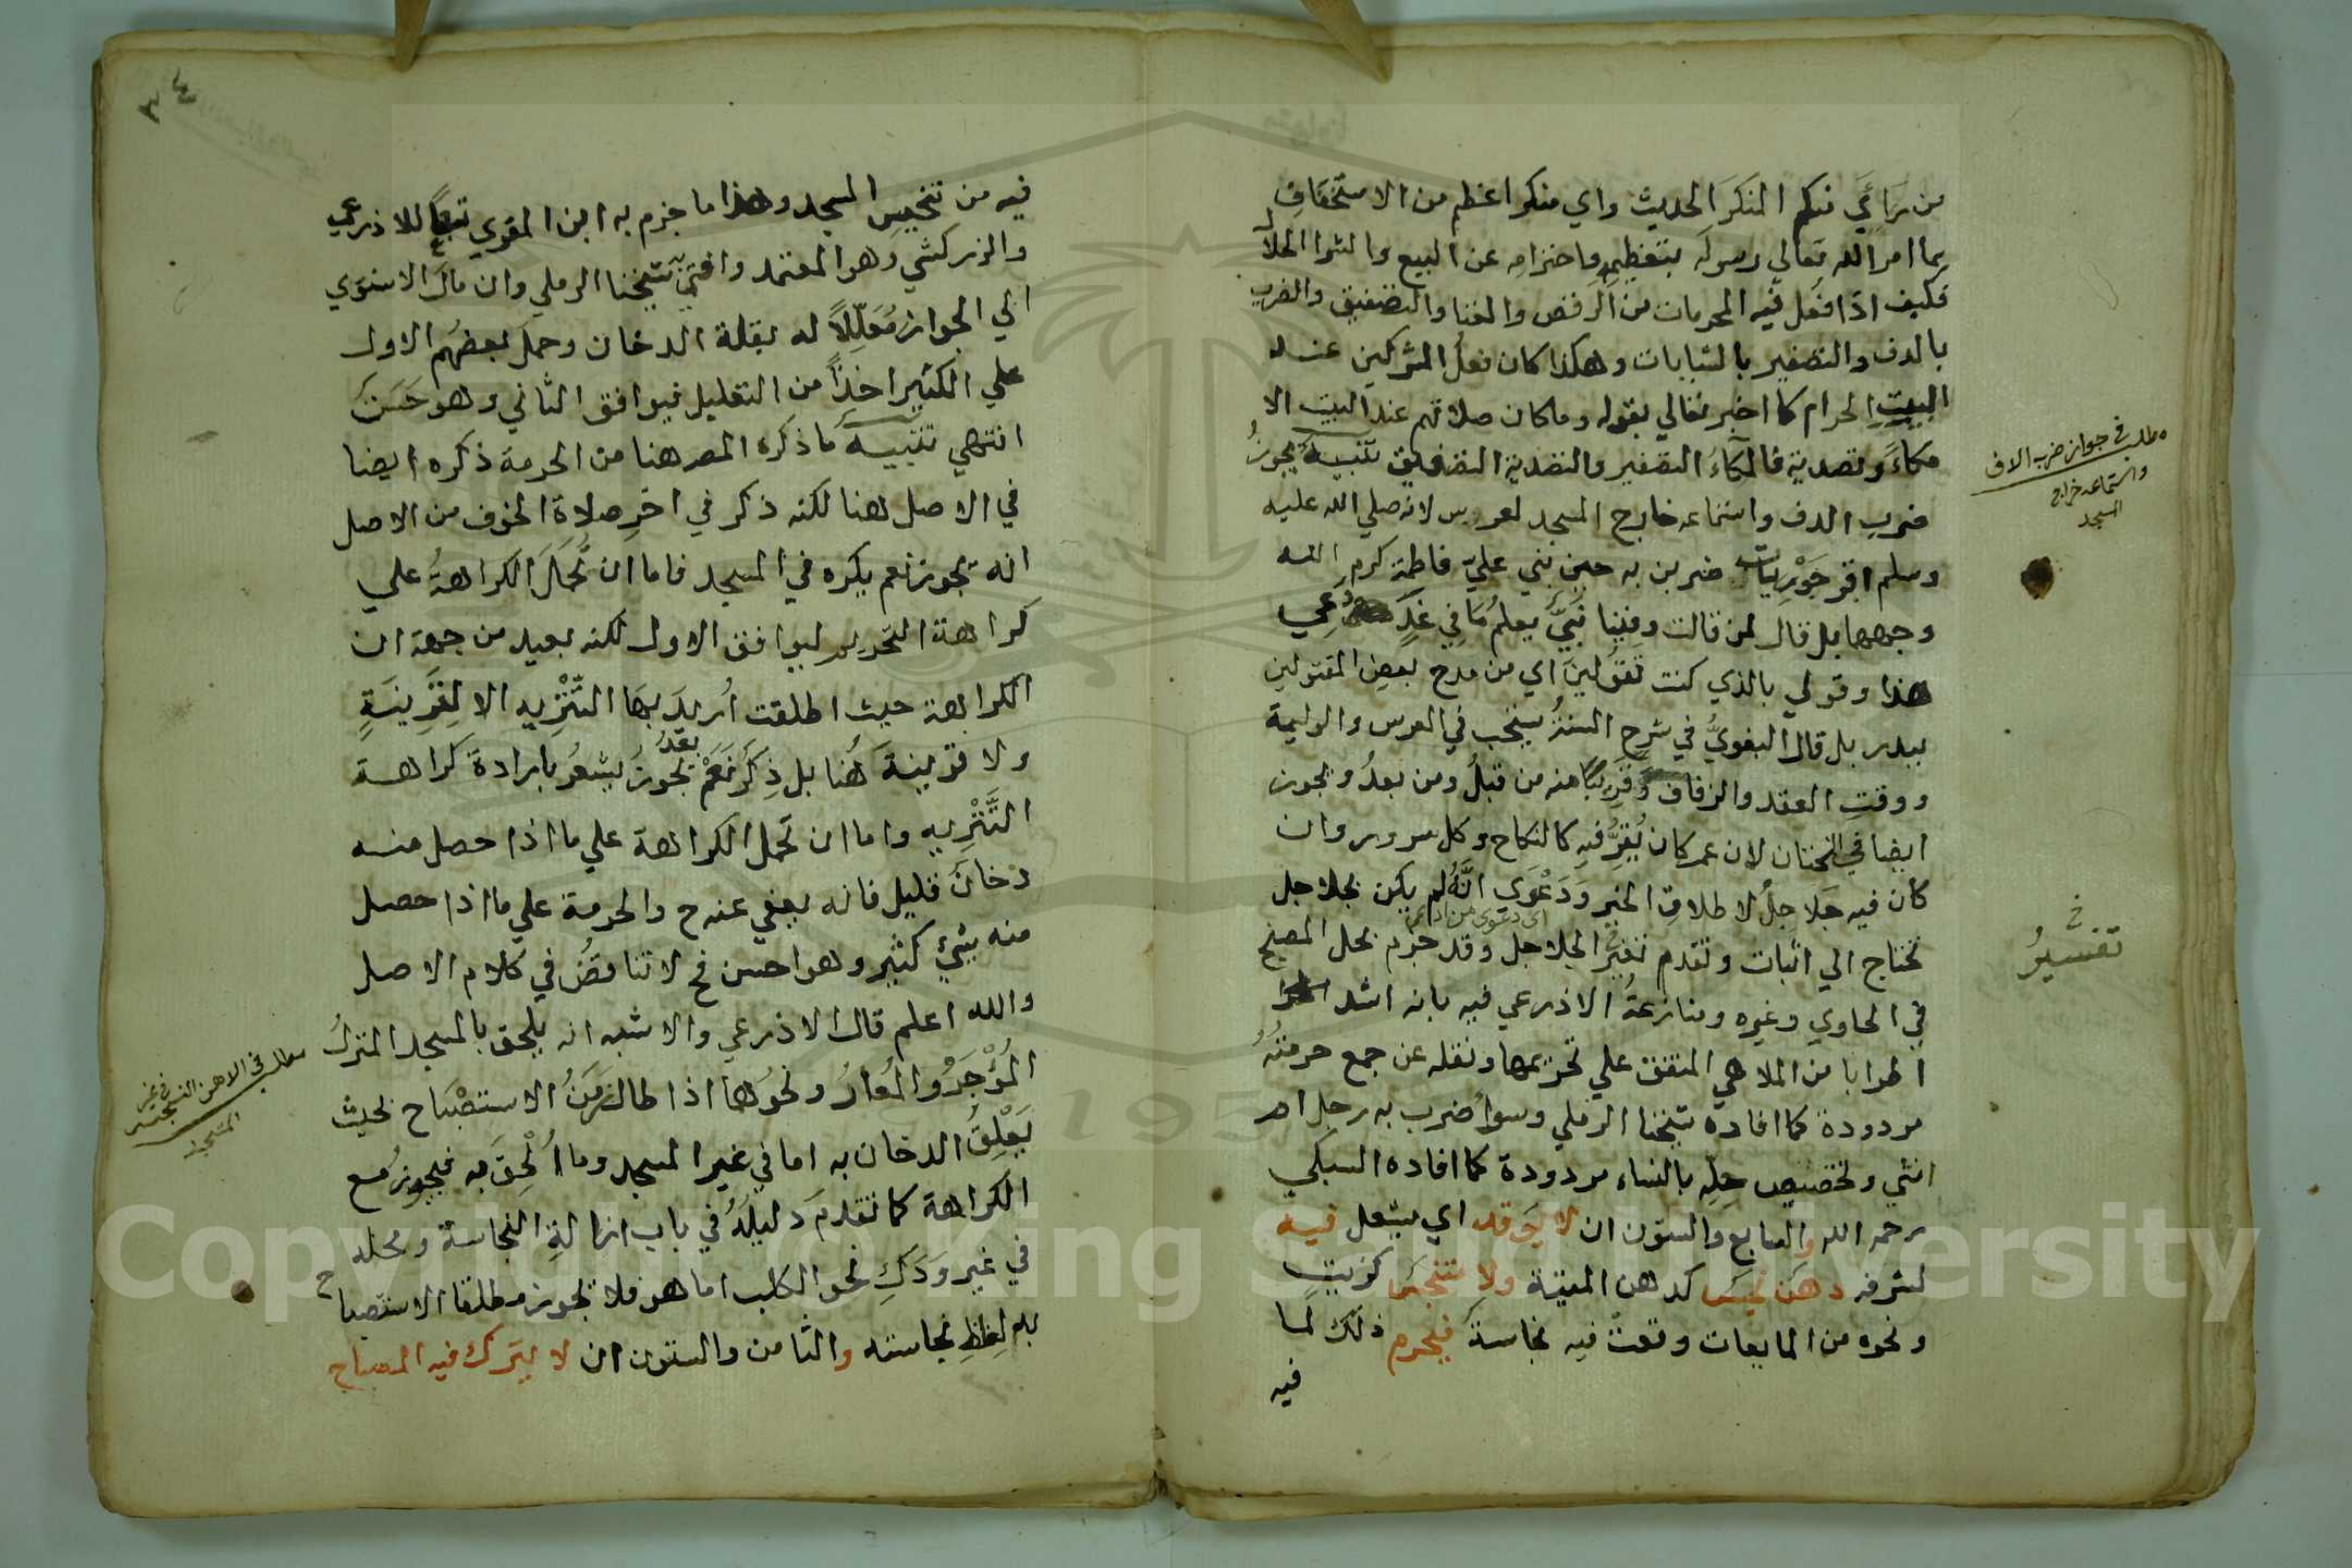 من رَاءَي منكم المنكَرَ الحديث واي منكرا عظم من الاستخفافِ
بما امر الله تعالي رسوله بتعظيمِهِ واحترامِه عن البيع والشرا الحلال
فكيف اذا فُعل فيه المحرمات من الرقص والغنا والتصفيق والضرب
بالدف والتصفير بالشبابات وهكذا كان فعلُ المشركين عند
البيتِ الحرام كما اخبر تعالي بقوله وما كان صلاتهم عند البيت الا
مكاءً وتصدية فالمكاءُ التصفير والتصدية التصفيق تنبيه يجوزُ
ضرب الدف واستماعه خارج المسجد لعروس لانه صلي الله عليه
وسلم اقر جَوْرِيات ضربن به حين بني عليّ فاطمة كرم الله
وجهها بل قال لمن قالت وفينا نبيٌّ يعلمُ مَا فِي غَدٍ دعي
هذا وقولي بالذي كنت تقولينَ اي من مدح بعض المقتولين
ببدر بل قال البغويُّ في شرحِ السنةُ يستحب في العرس والوليمة
ووقتِ العقد والزفاف وَقَرِيبًا منه من قبلُ ومن بعدُ ويجوز
ايضا في الختان لان عمر كان يُقِرُّ فيه كالنكاح وكل سرور وان
كان فيه جَلاجِلُ لاطلاقِ الخبر وَدَعْوَي انَّهُ لم يكن بجلاجل
اي دعوي من ادعي
تحتاج الي اثبات وتقدم تفسيرُ الجلاجل وقد جزم بحل الصنج
في الحاوي وغيره ومنازعةُ الاذرعي فيه بانه اشد
اطرابا من الملاهي المتفق علي تحريمها ونقله عن جمع حرمتُهُ
مردودة كما افاده شيخنا الرملي وسواُ ضرب به رجل ام
انثي وتخصيص حِلِه بالنساء مردودة كما افاده السبكي
رحمه الله والسابع والستون ان لا يُوقد اي يشعل فيه
لشرفه دهنٌ نجسٌ كدهن الميتة ولا متنجسٌ كزيتٍ
ونحوه من المايعات وقعت فيه نجاسةٌ فيحرم ذلك لما
فيه
مطلب في جواز ضرب الدف
واستماعه خارج
المسجد
خ
تفسيرُ
٣٤
فيه من تنجيسِ المسجد وهذا ما جزم به ابن المقري تبعًا للاذرعي
والزركشي وهو المعتمد وافتي به شيخنا الرملي وان مال الاسنوي
الي الجواز مُعَلِّلاً له بقلة الدخان وحمل بعضُهم الاول
علي الكثير اخذًا من التعليل فيوافق الثاني وهو حَسَنٌ
انتهي تنبيه ما ذكره المصر هنا من الحرمة ذكره ايضا
في الاصل هنا لكنه ذكر في اخرِ صلاة الخوف من الاصل
انه يجوز نعم يكره في المسجد فاما ان تُحمَلَ الكراهةُ علي
كراهة التحريم ليوافق الاول لكنه بعيد من جهة ان
الكراهة حيث اطلقت اُريدَ بها التَّنْزِيه الا لِقَرِينَةٍ
ولا قرينةَ هُنا بل ذِكرُ نَعَمْ بعدُ يجوزُ يشعرُ بارادة كراهة
التَّنْزِيهِ واما ان تحمل الكراهة علي ما اذا حصل منه
دخانٌ قليل فانه يعفي عنه ح والحرمة علي ما اذا حصل
منه شيئٌ كثير وهو احسن فح لا تناقضُ في كلام الاصل
والله اعلم قال الاذرعي والاشبه انه يلحق بالمسجد المنزلُ
المُؤْجَرُ والمُعارُ ونحوُها اذا طال زمنُ الاستصْبَاح بحيث
يَعْلِقُ الدخان به اما في غير المسجد وما اُلْحِقَ به فيجوزُ مع
الكراهة كما تقدمَ دليلُهُ في باب ازالةِ النجاسة ومحله
في غير وَدَكِ نحو الكلب اما هو فلا يجوز مطلقا الاستصباح
به لِغِلَظِ نجاسته والثامن والستون ان لا يترك فيه المصباح
مطلب في الادهن النجس في غير
المسجد
Copyright © King Saud University
195